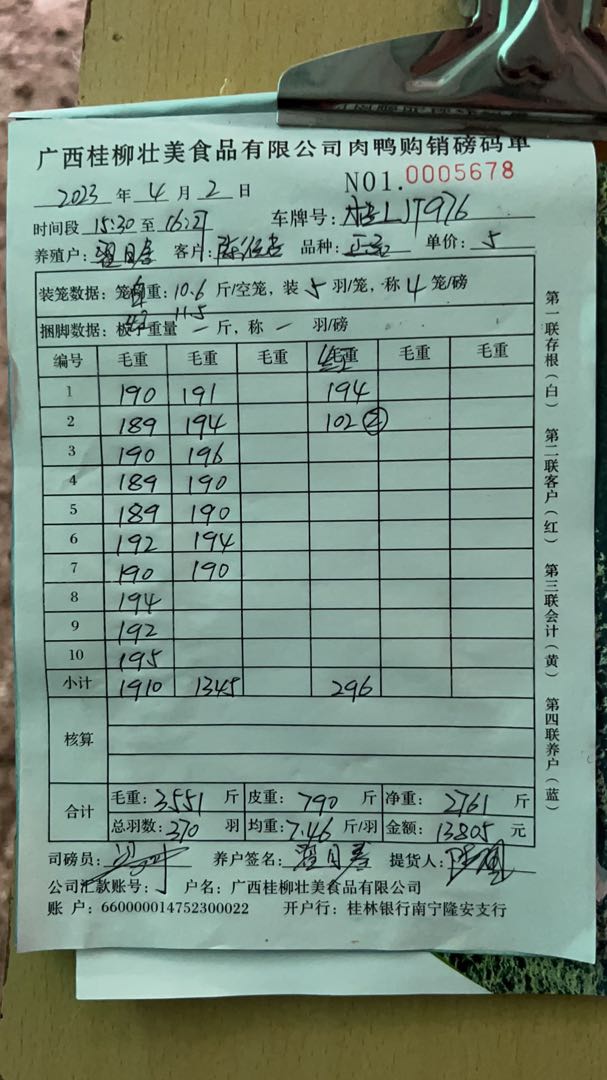 广西桂柳壮美食品有限公司肉鸭购销磅码单
2023 年 4 月 2 日 NO1. 0005678
时间段 15:30 至 车牌号: LJT976
养殖户: 客户: 品种: 单价: 5
装笼数据: 笼 重: 10.6 斤/空笼, 装 5 羽/笼, 称 4 笼/磅
11.5
捆脚数据: 重量 一 斤, 称 一 羽/磅
编号 毛重 毛重 毛重 毛重 毛重 毛重
1 190 191 194
2 189 194 102 ②
3 190 196
4 189 190
5 189 190
6 192 194
7 190 190
8 194
9 192
10 195
小计 1910 1345 296
核算
合计 毛重: 3551 斤 皮重: 790 斤 净重: 2761 斤
总羽数: 370 羽 均重: 7.46 斤/羽 金额: 13805 元
司磅员: 养户签名: 提货人:
公司汇款账号: 户名: 广西桂柳壮美食品有限公司
账 户: 660000014752300022 开户行: 桂林银行南宁隆安支行
第一联存根(白) 第二联客户(红) 第三联会计(黄) 第四联养户(蓝)